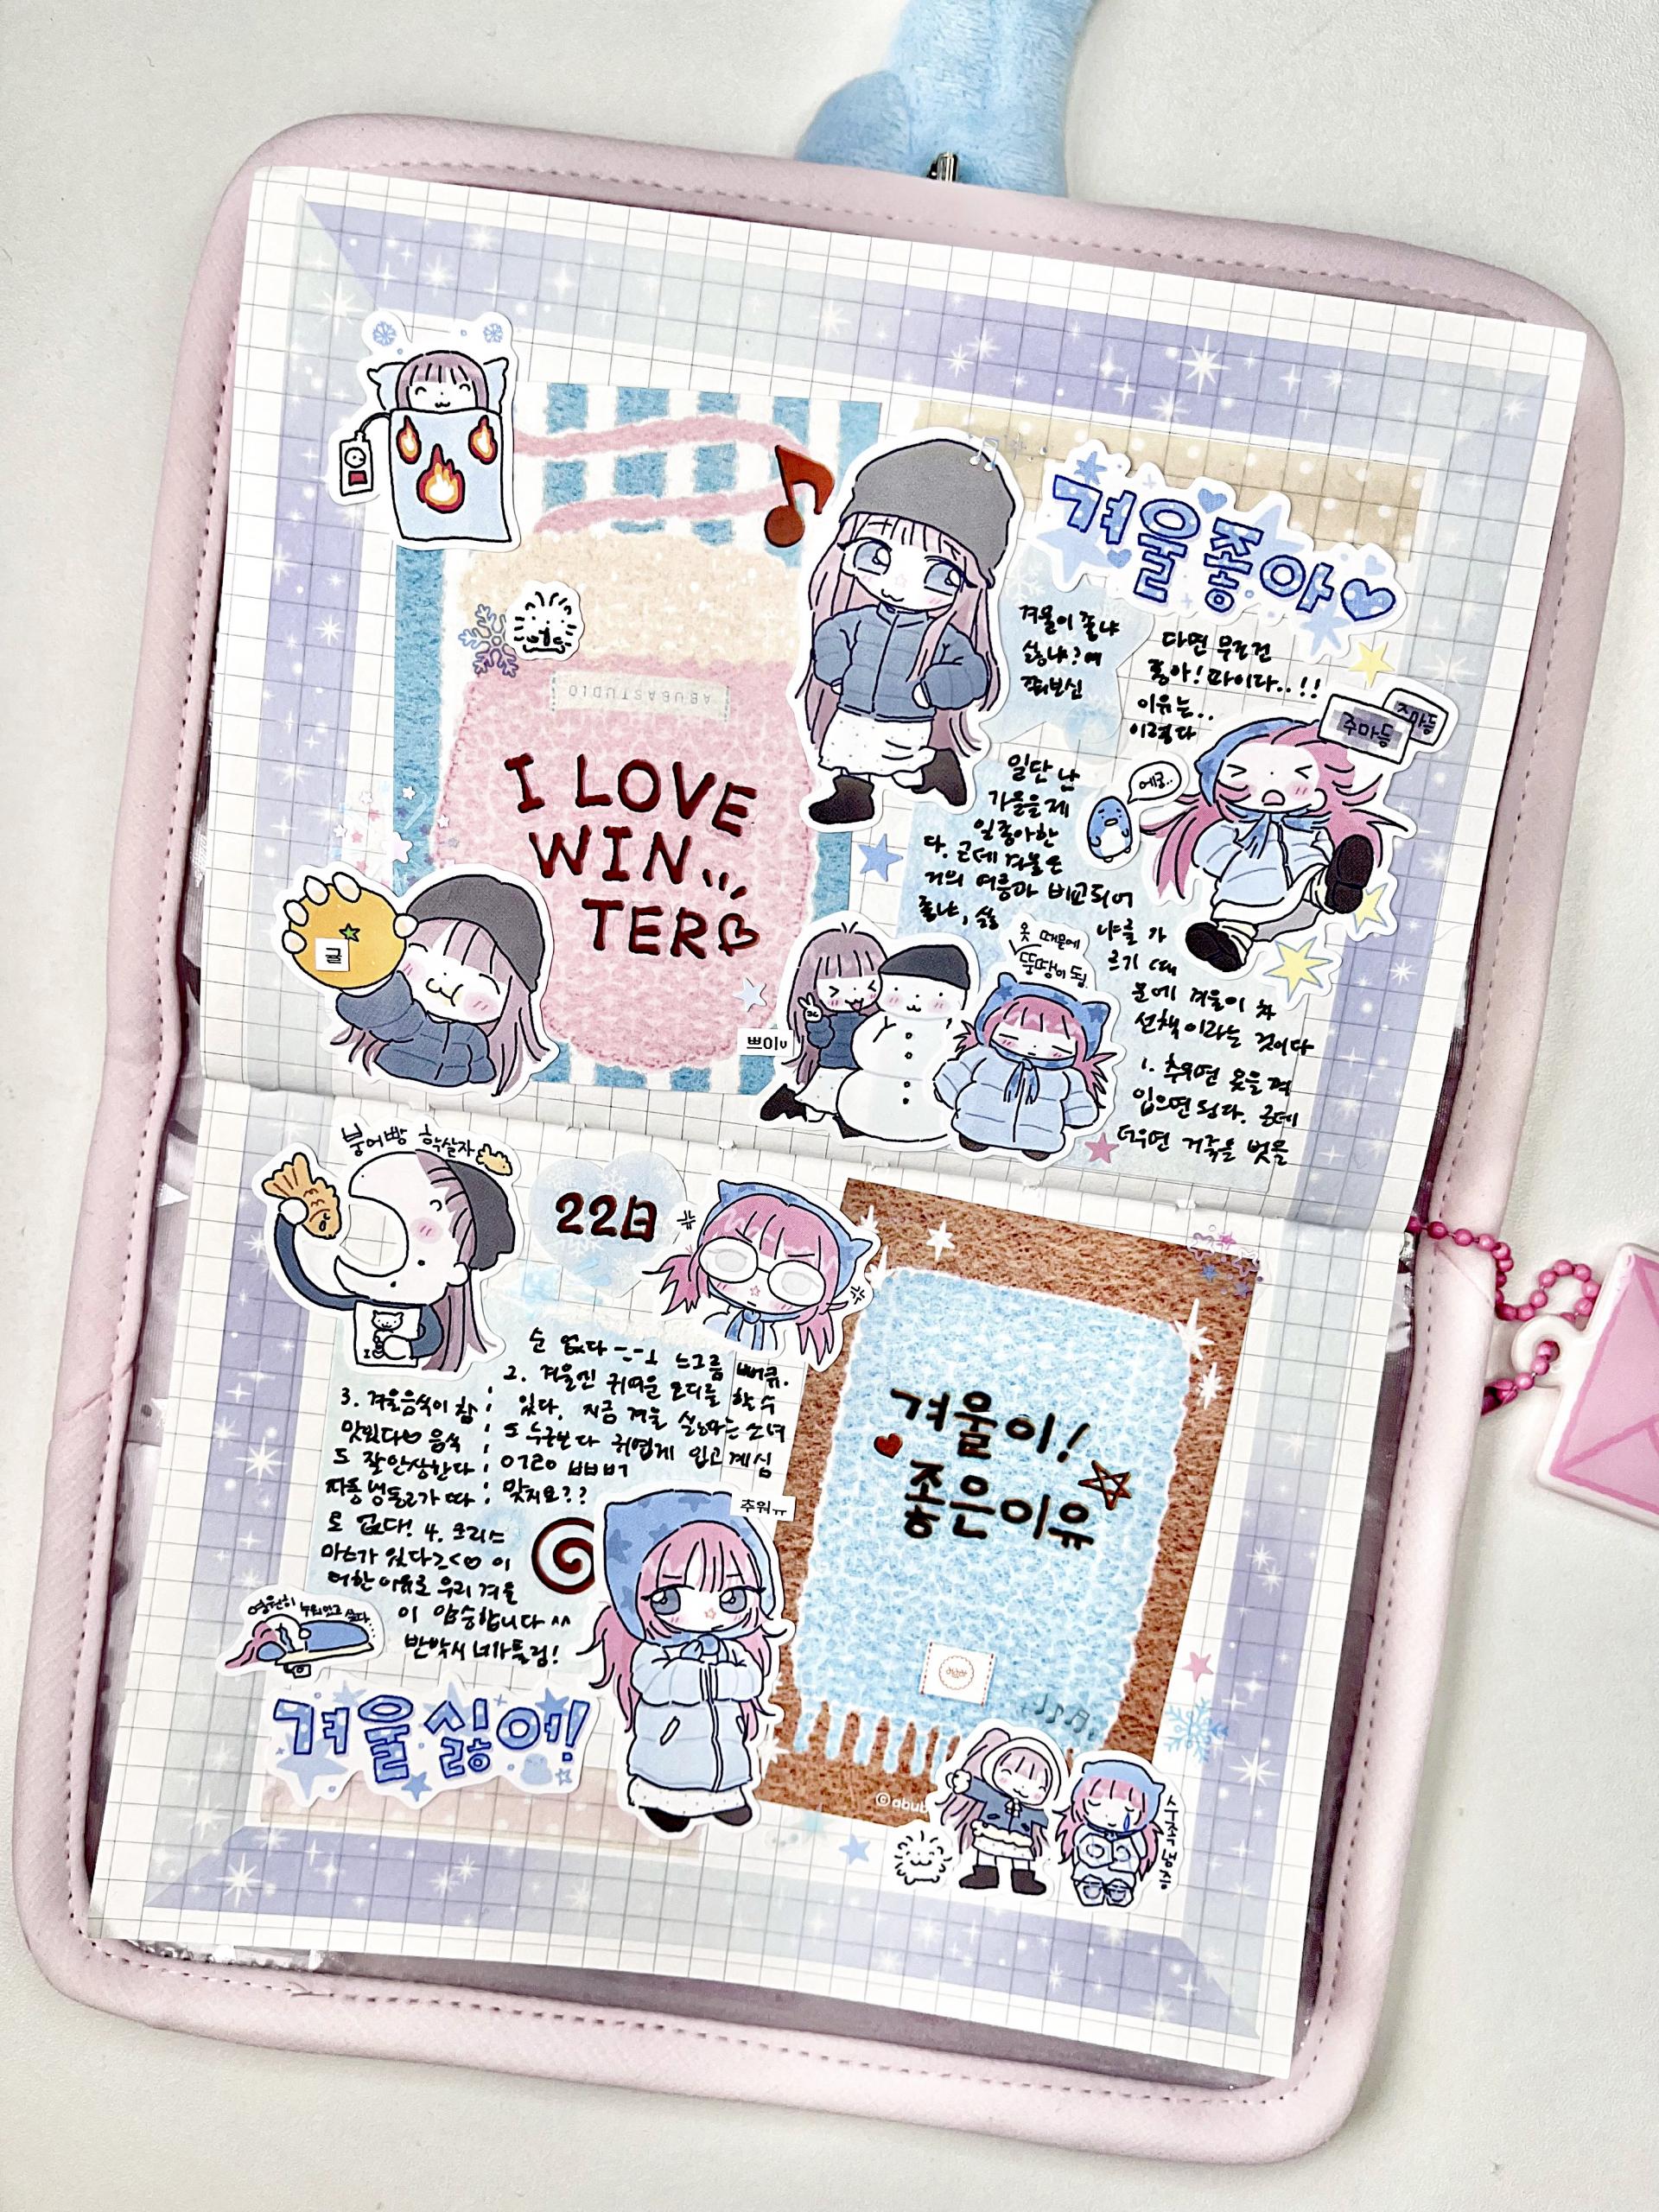 I LOVE
WIN
TER
ABUBASTUDIO
귤
쁘이
겨울좋아
겨울이 좋냐
싫냐? 에
다면 무조건
좋아! 파이다..!!
이유는..
이렇다
주마등
주마등
에구..
일단 난
가을을 제
일 좋아한
다. 근데 겨울은
거의 여름과 비교되어
좋냐, 싫
냐를 가
르기 때
문에 겨울이 차
선책이라는 것이다
1. 추우면 옷을 껴
입으면 된다. 근데
더우면 거죽을 벗을
옷 때문에
뚱땅이 됨
붕어빵 학살자
22日
순 없다
2. 겨울엔 귀여운 코디를 할 수
있다. 지금 겨울 싫어하는 소녀
도 누구보다 귀엽게 입고 계심
맞지요??
3. 겨울음식이 참
맛있다 음식
도 잘 안상한다
자동 냉동고가 따
로 없다! 4. 크리스
마스가 있다><♡ 이
러한 이유로 우리 겨울
이 압승합니다 ^^
반박시 네가틀림!
영원히 누워있고 싶다
겨울싫어!
추워ㅠ
겨울이!
좋은이유
©abub